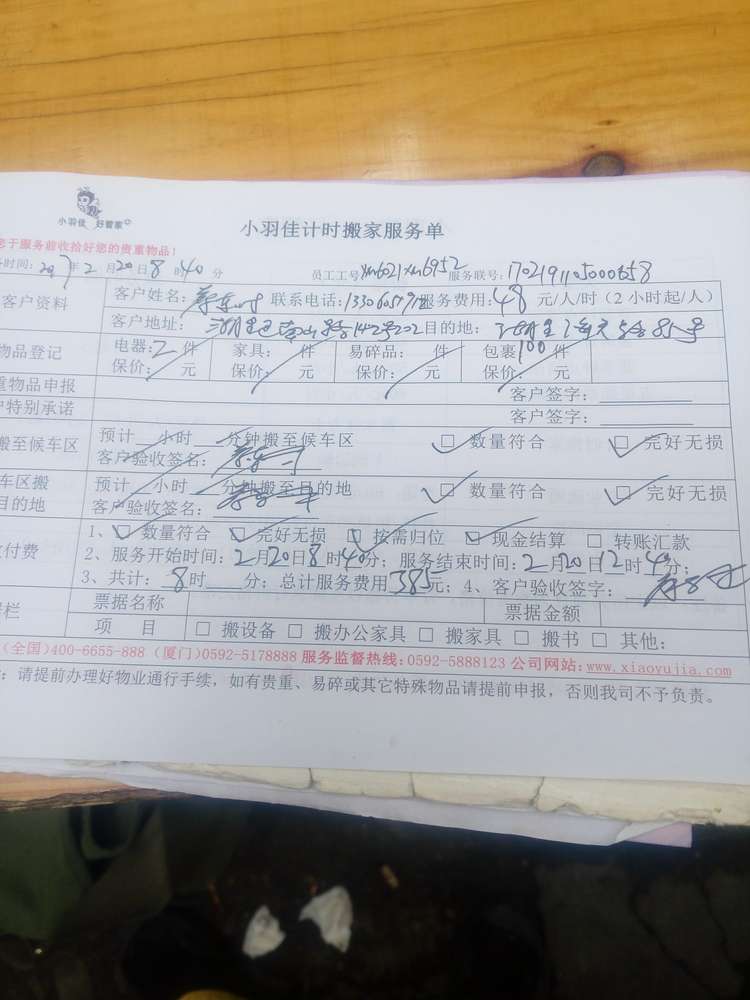 小羽佳 好管家
小羽佳计时搬家服务单
您于服务前收拾好您的贵重物品！
时间：2017年2月20日8时40分 员工工号xm6021xm6952 服务联号：1702191105000658
客户资料 客户姓名： 联系电话： 服务费用：48元/人/时（2小时起/人）
客户地址： 目的地：
物品登记 电器：2件 家具： 件 易碎品： 件 包裹100件
保价： 元 保价： 元 保价： 元 保价： 元
重物品申报 客户签字：
户特别承诺 客户签字：
搬至候车区 预计 小时 分钟搬至候车区 数量符合 完好无损
客户验收签名：
车区搬 目的地 预计 小时 分钟搬至目的地 数量符合 完好无损
客户验收签名：
付费 1、 数量符合 完好无损 按需归位 现金结算 转账汇款
2、服务开始时间：2月20日8时40分；服务结束时间：2月20日12时40分；
3、共计：8时 分；总计服务费用385元；4、客户验收签字：
栏 票据名称 票据金额
项 目 搬设备 搬办公家具 搬家具 搬书 其他：
(全国)400-6655-888 (厦门)0592-5178888 服务监督热线：0592-5888123 公司网站：www.xiaoyujia.com
：请提前办理好物业通行手续，如有贵重、易碎或其它特殊物品请提前申报，否则我司不予负责。